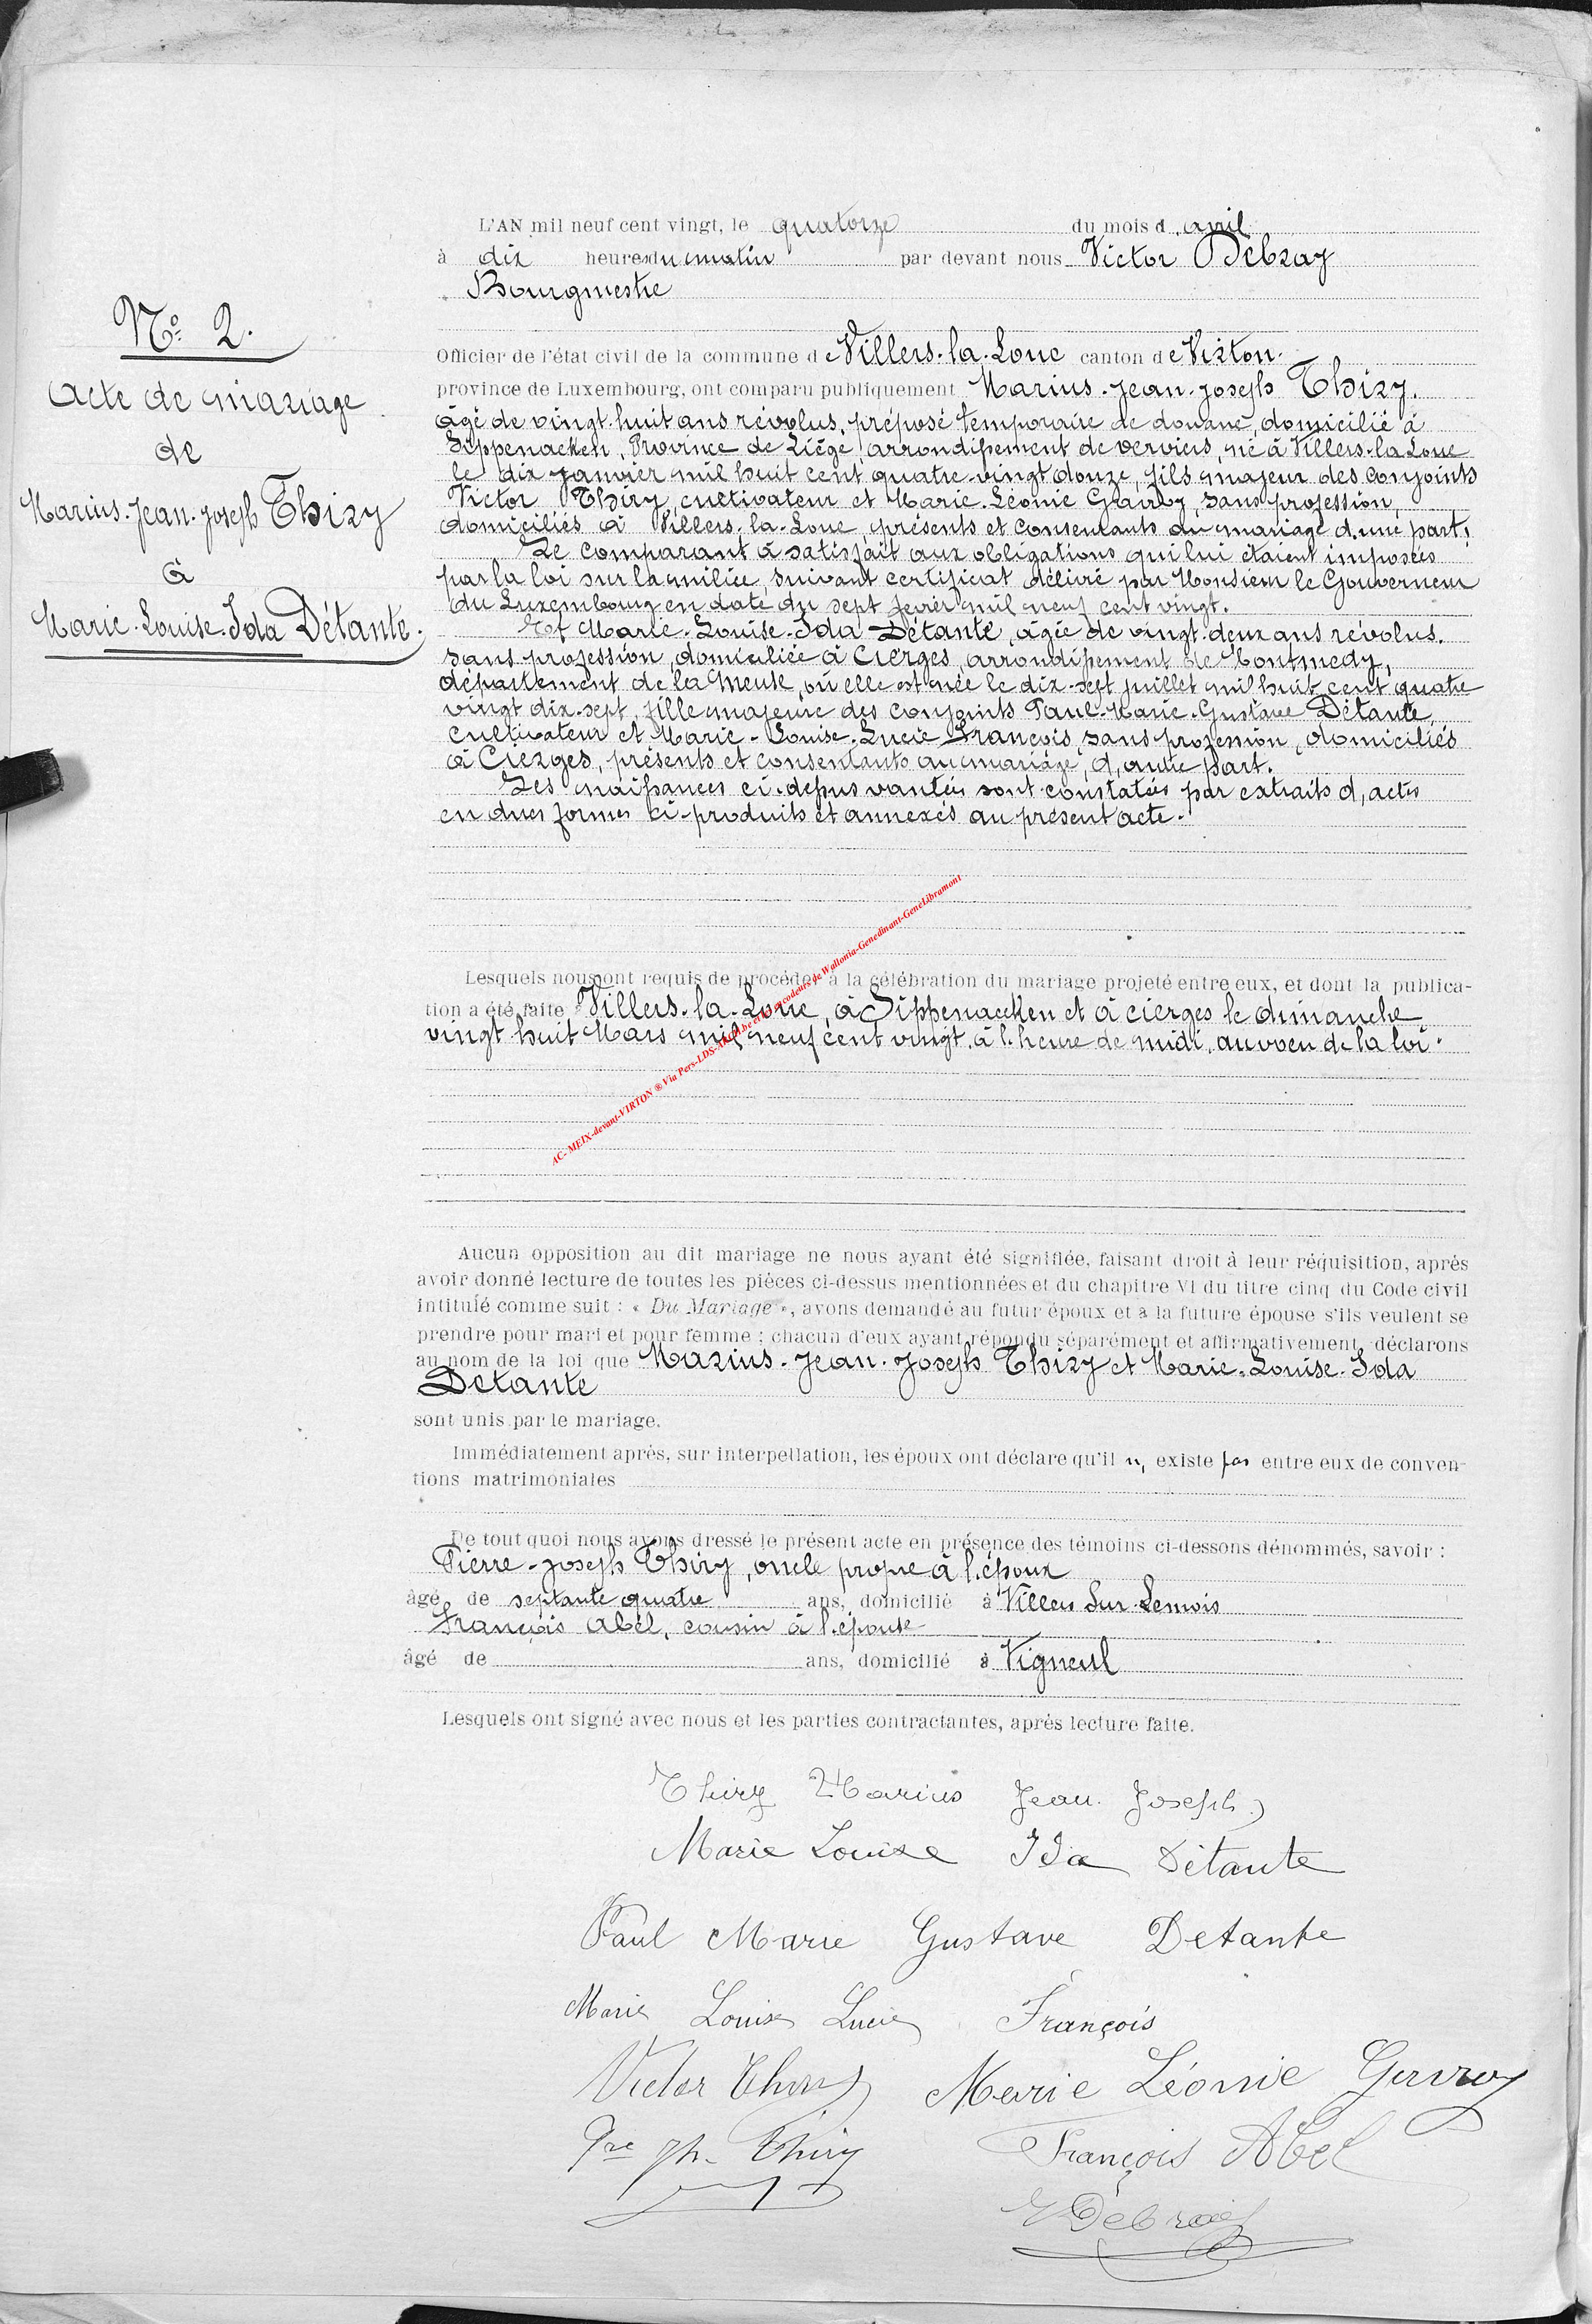 L'AN mil neuf cent vingt, le quatorze du mois d avril
à dix heures du matin par devant nous Victor Debray
Bourgmestre
N° 2.
Acte de mariage
de
Marius-Jean-Joseph Thiry
à
Marie-Louise-Ida Détante.
Officier de l'état civil de la commune de Villers-la-Loue canton de Virton.
province de Luxembourg, ont comparu publiquement Marius-Jean-Joseph Thiry.
âgé de vingt-huit ans révolus, préposé temporaire de douane, domicilié à
Sippenaeken, Province de Liège, arrondissement de Verviers, né à Villers-la-Loue
le dix janvier mil huit cent quatre-vingt douze, fils majeur des conjoints
Victor Thiry, cultivateur et Marie-Léonie Gavroy, sans profession,
domiciliés à Villers-la-Loue, présents et consentants au mariage d'une part.
Le comparant à satisfait aux obligations qui lui étaient imposées
par la loi sur la milice suivant certificat délivré par Monsieur le Gouverneur
du Luxembourg en date du sept fevrier mil neuf cent vingt.
Et Marie-Louise-Ida Détante, âgée de vingt-deux ans révolus.
sans profession, domiciliée à Cierges, arrondissement de Montmedy,
département de la Meuse, où elle est née le dix-sept juillet mil huit cent quatre
vingt dix-sept, fille majeure des conjoints Paul-Marie-Gustave Détante,
cultivateur et Marie-Louise-Lucie François, sans profession, domiciliés
à Cierges, présents et consentants au mariage, d'autre part.
Les naissances ci-dessus vantées sont constatées par extraits d'actes
en dues formes ci-produits et annexés au présent acte.
Lesquels nous ont requis de procéder à la célébration du mariage projeté entre eux, et dont la publica-
tion a été faite Villers-la-Loue, à Sippenaeken et à Cierges le dimanche
vingt huit Mars mil neuf cent vingt, à l'heure de midi, au voeu de la loi.
AC- MEIX-devant-VIRTON ® Via Pers-LDS- Wallonia-Genedinant-GeneLibramont
Aucun opposition au dit mariage ne nous ayant été signifiée, faisant droit à leur réquisition, après
avoir donné lecture de toutes les pièces ci-dessus mentionnées et du chapitre VI du titre cinq du Code civil
intitulé comme suit : « Du Mariage », avons demandé au futur époux et à la future épouse s'ils veulent se
prendre pour mari et pour femme ; chacun d'eux ayant répondu séparément et affirmativement, déclarons
au nom de la loi que Marius-Jean-Joseph Thiry et Marie-Louise-Ida
Détante
sont unis par le mariage.
Immédiatement après, sur interpellation, les époux ont déclaré qu'il n, existe pas entre eux de conven-
tions matrimoniales
De tout quoi nous avons dressé le présent acte en présence des témoins ci-dessons dénommés, savoir :
Pierre-Joseph Thiry, oncle propre à l'époux
âgé de septante quatre ans, domicilié à Villers sur Semois
François Abel, cousin à l'épouse
âgé de ans, domicilié à Vigneul
Lesquels ont signé avec nous et les parties contractantes, après lecture faite.
Thiry Marius Jean Joseph
Marie Louise Ida Détante
Paul Marie Gustave Detante
Marie Louise Lucie François
Victor Thiry Marie Léonie Gavroy
Pre Jh. Thiry François Abel
V Debray